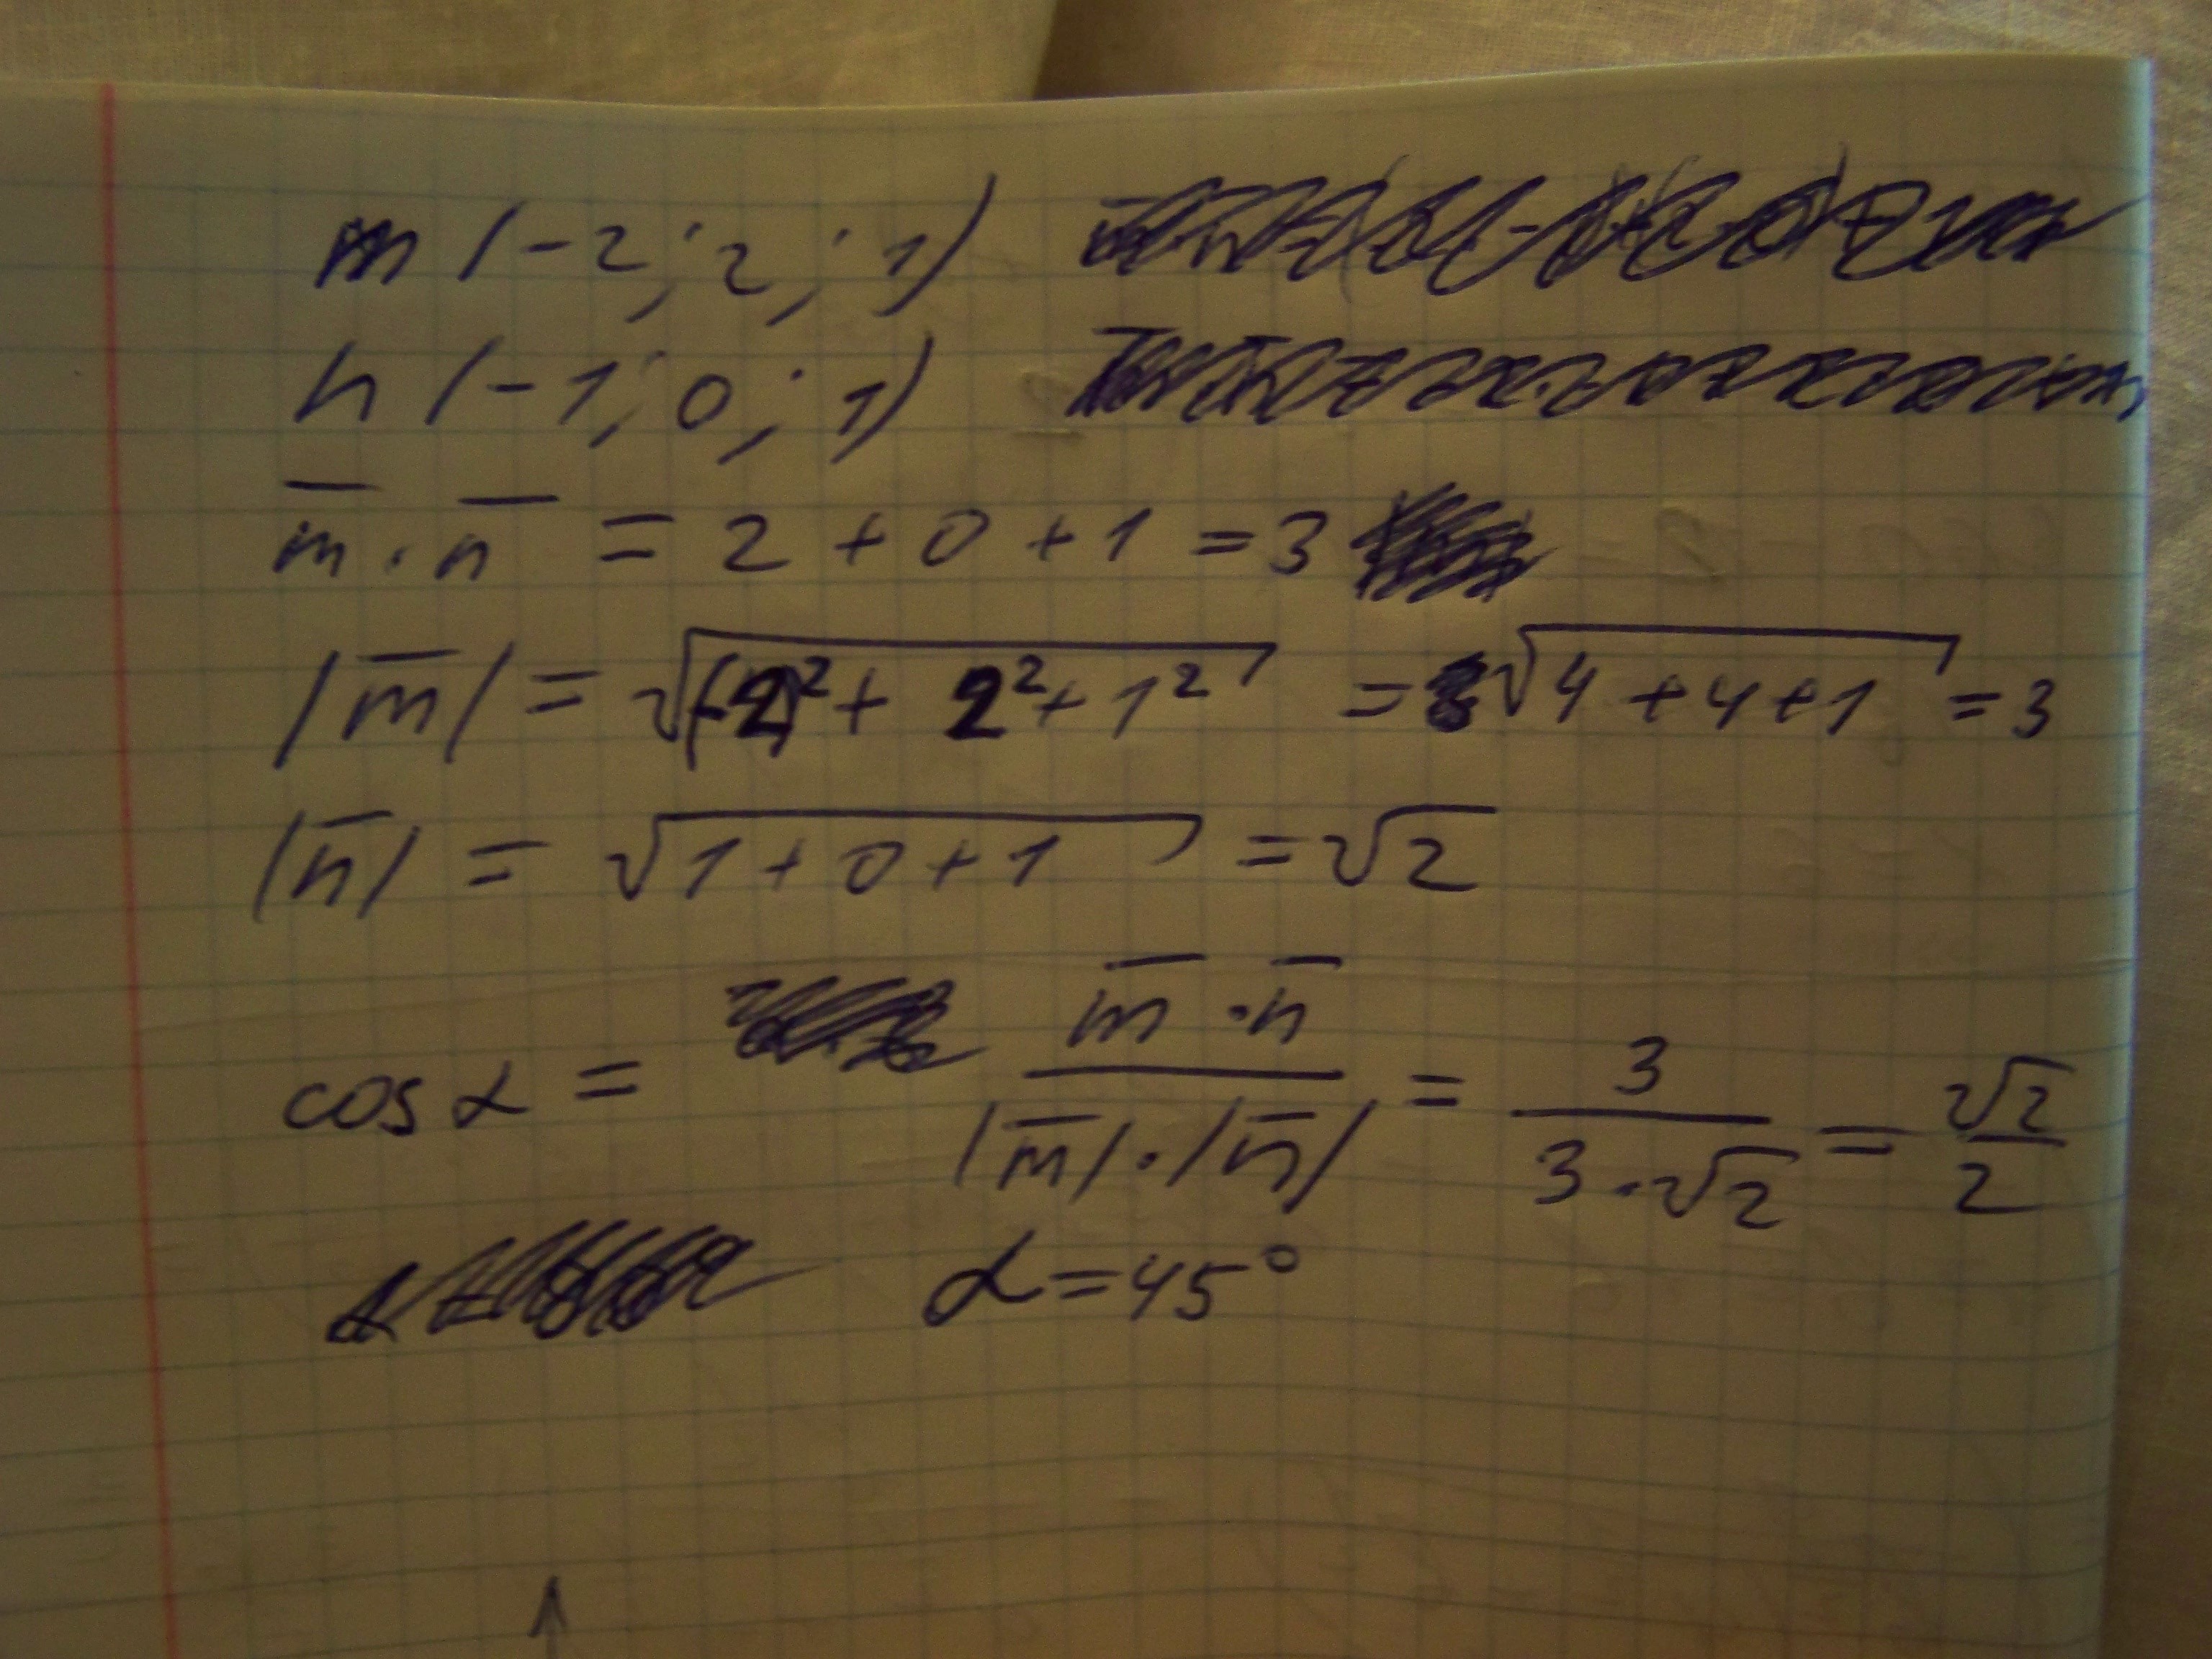 m (-2; 2; 1)
n (-1; 0; 1)
m̅ · n̅ = 2 + 0 + 1 = 3
|m̅| = √((-2)² + 2² + 1²) = √(4 + 4 + 1) = 3
|n̅| = √(1 + 0 + 1) = √2
cos α = (m̅ · n̅) / (|m̅| · |n̅|) = 3 / (3 · √2) = √2 / 2
α = 45°